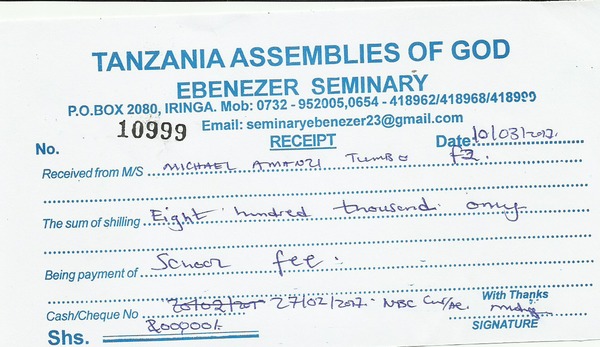 TANZANIA ASSEMBLIES OF GOD
EBENEZER SEMINARY
P.O.BOX 2080, IRINGA. Mob: 0732 - 952005,0654 - 418962/418968/418999
Email: seminaryebenezer23@gmail.com
No. 10999 RECEIPT Date: 10/03/2017.
Received from M/S MICHAEL AMANZI TUMBO F2.
The sum of shilling Eight hundred thousand only
Being payment of School fee.
Cash/Cheque No 27/02/2017. NBC With Thanks
Shs. 800000/- SIGNATURE